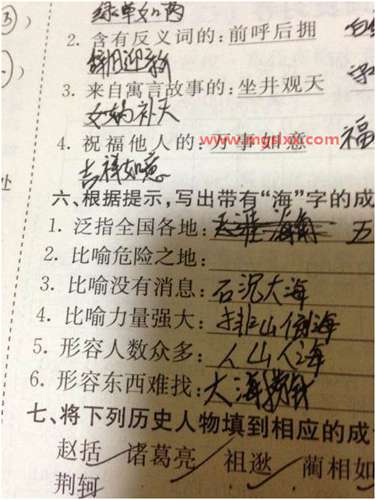 绿草如
2. 含有反义词的:前呼后拥
辞旧迎新
3. 来自寓言故事的:坐井观天
女娲补天
www.mgslxx.com
4. 祝福他人的:万事如意 福
吉祥如意
处
六、根据提示,写出带有“海”字的成
1. 泛指全国各地:天涯海角 五
2. 比喻危险之地:
3. 比喻没有消息:石沉大海
4. 比喻力量强大:排山倒海
5. 形容人数众多:人山人海
6. 形容东西难找:大海捞针
七、将下列历史人物填到相应的成
赵括 诸葛亮 祖逖 蔺相如
荆轲